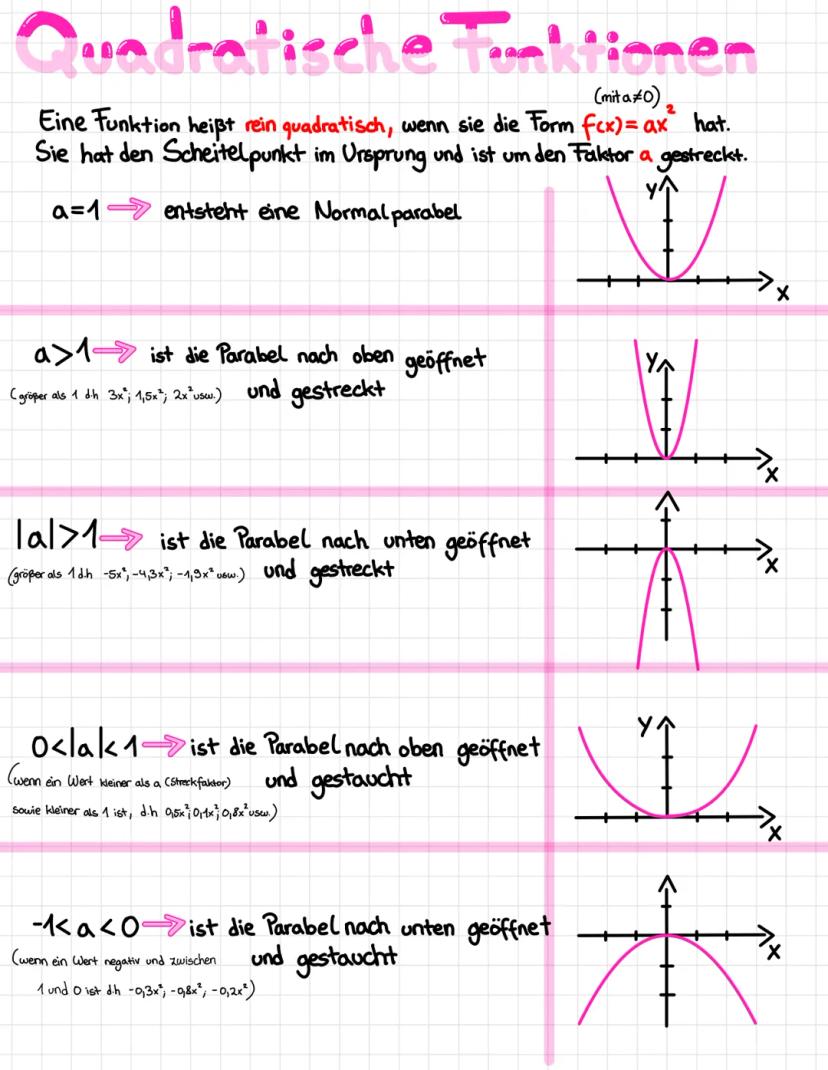 Quadratische Funktionen
(mit a≠0)
Eine Funktion heißt rein quadratisch, wenn sie die Form f(x)= ax² hat.
Sie hat den Scheitelpunkt im Ursprung und ist um den Faktor a gestreckt.
a=1 ⇒ entsteht eine Normalparabel
y
x
a>1 ⇒ ist die Parabel nach oben geöffnet
(größer als 1 d.h 3x²; 1,5x²; 2x² usw.) und gestreckt
y
x
|a|>1 ⇒ ist die Parabel nach unten geöffnet
(größer als 1 d.h -5x²; -4,3x²; -1,9x² usw.) und gestreckt
x
0<|a|<1 ⇒ ist die Parabel nach oben geöffnet
(wenn ein Wert kleiner als a (Streckfaktor) und gestaucht
sowie kleiner als 1 ist, d.h 0,5x²; 0,1x²; 0,8x² usw.)
y
x
-1<a<0 ⇒ ist die Parabel nach unten geöffnet
(wenn ein Wert negativ und zwischen und gestaucht
1 und 0 ist d.h -0,3x²; -0,8x²; -0,2x²)
x